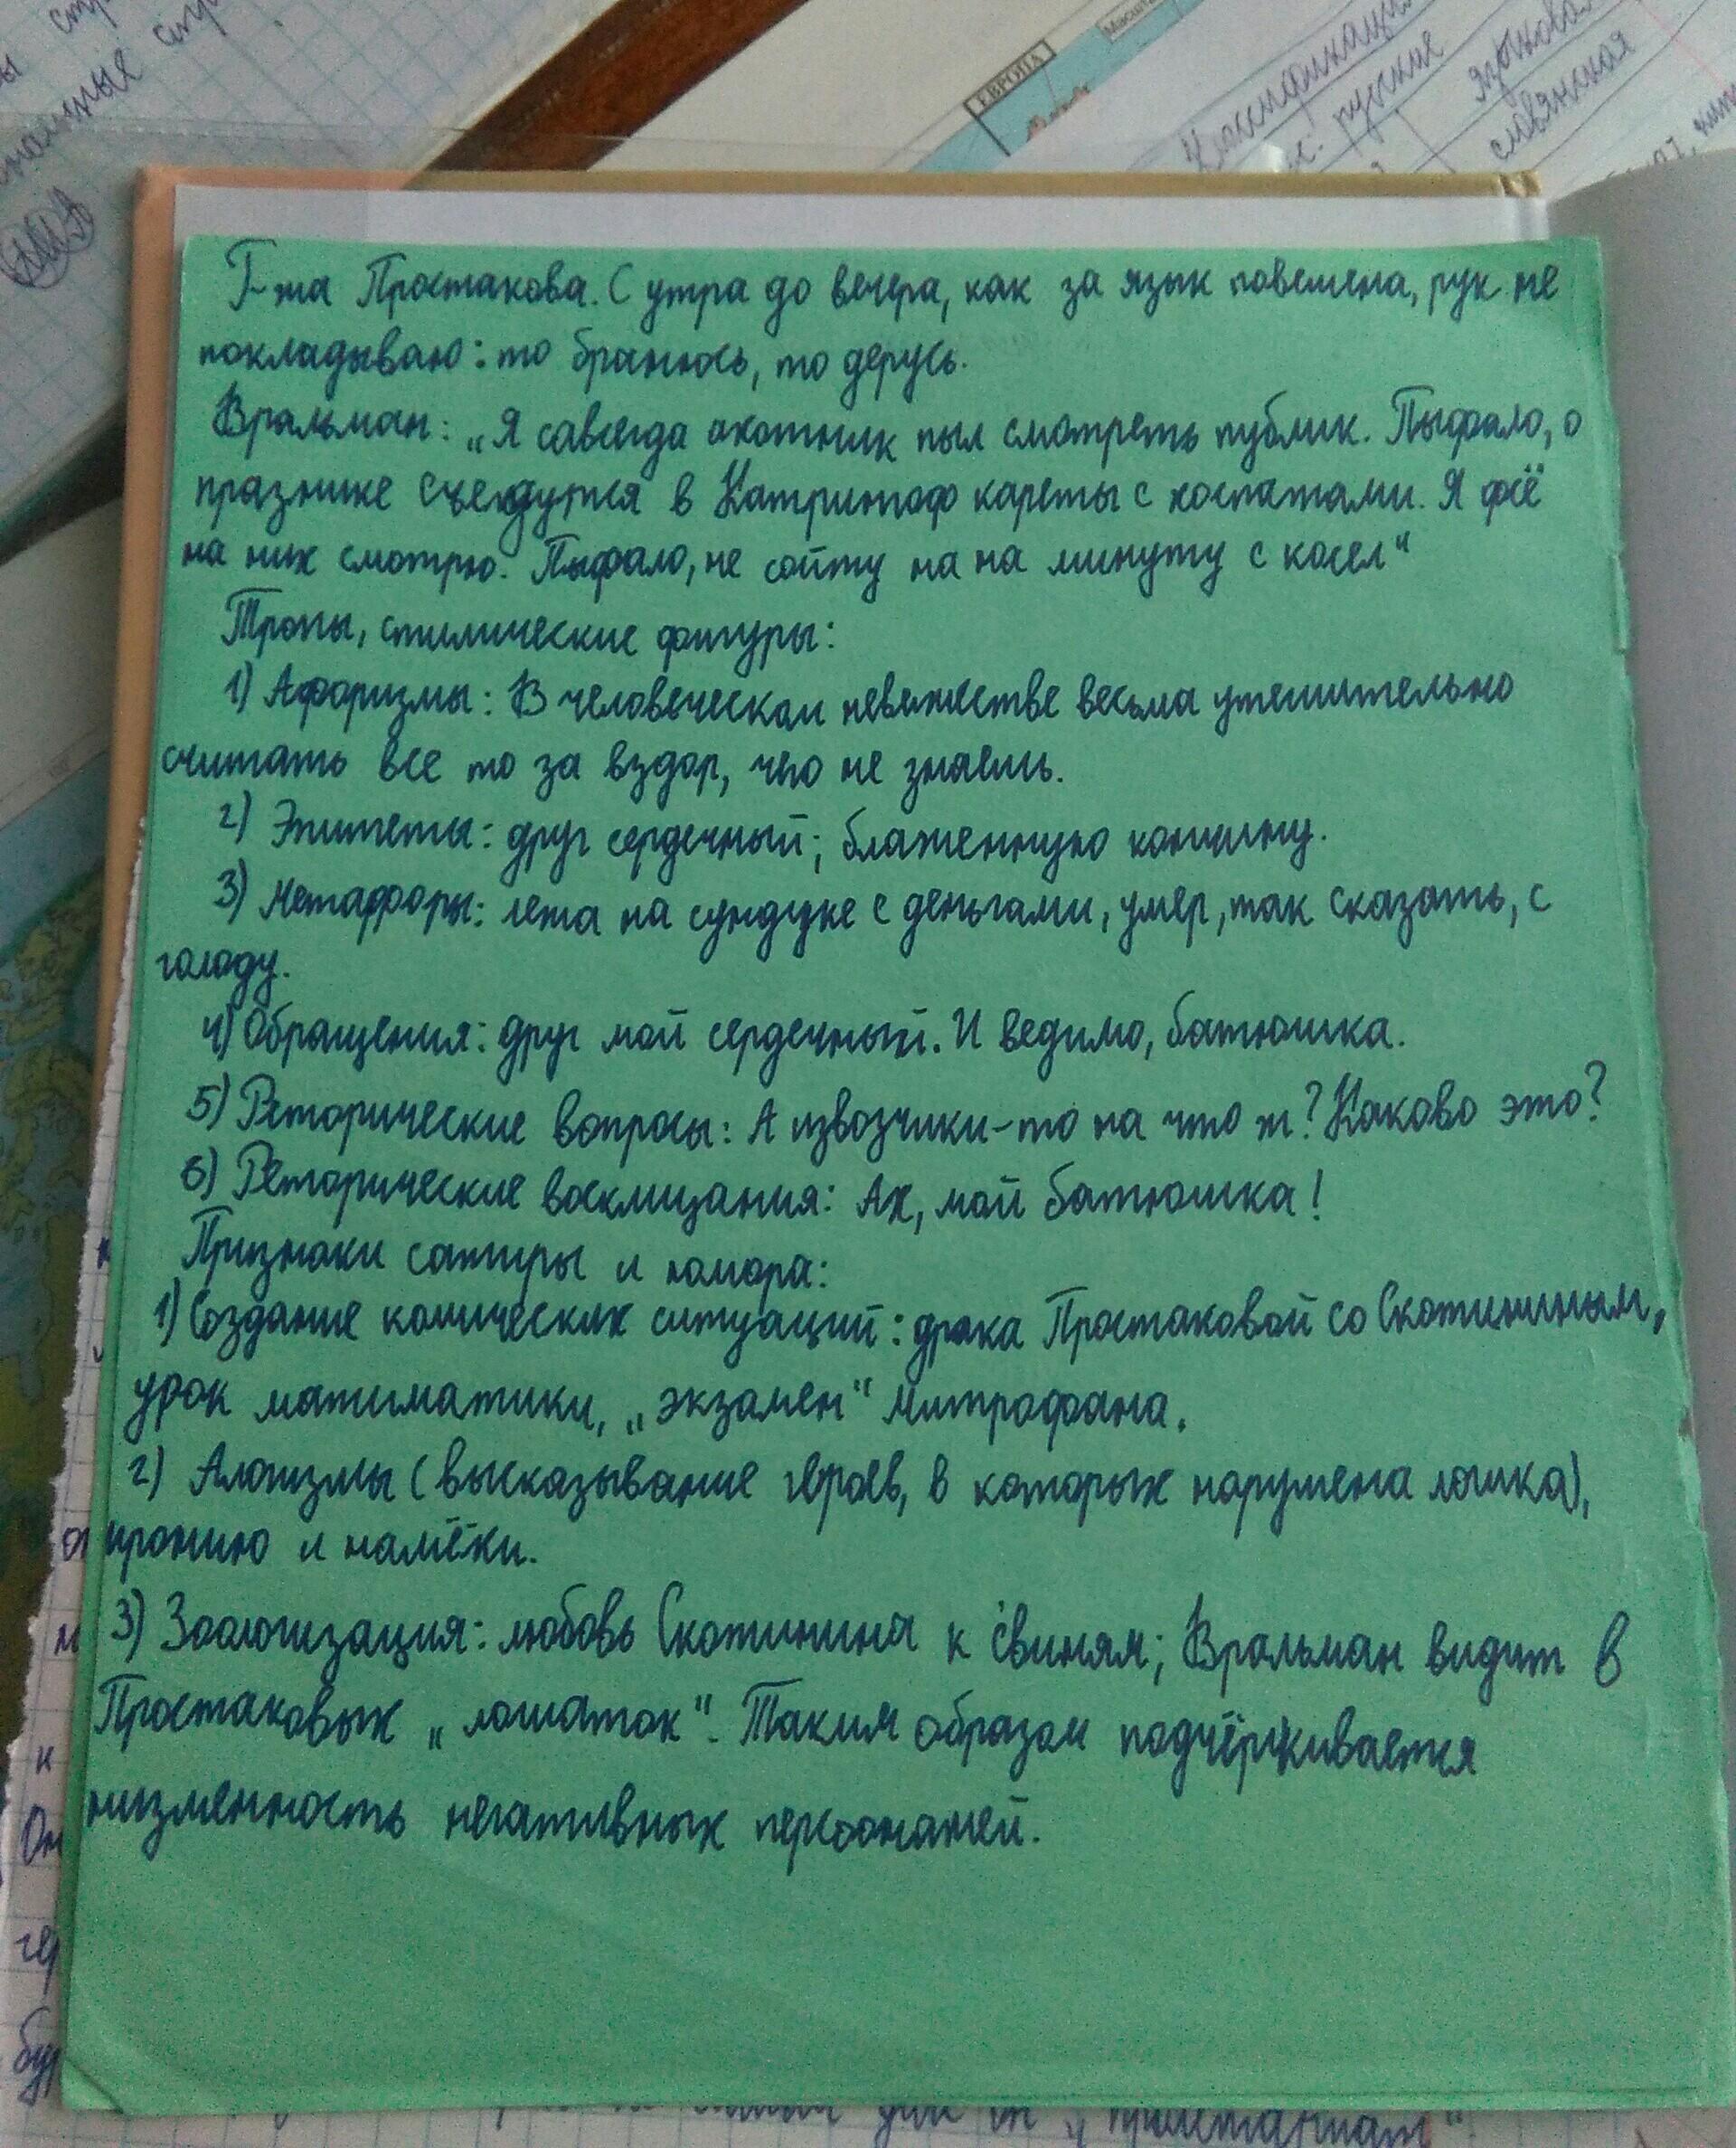 классификация
русские
языковая
славянская
ЕВРОПА
Г-жа Простакова. С утра до вечера, как за язык повешена, рук не
покладываю: то бранюсь, то дерусь.
Вральман: „Я савсегда охотник пыл смотреть публик. Пыфало, о
празнике съедутся в Катрингоф кареты с хоспатами. Я фсё
на них смотрю. Пыфало, не сойту на на минуту с косел“
Тропы, стилические фигуры:
1) Афоризмы: В человеческом невежестве весьма утешительно
считать все то за вздор, чего не знаешь.
2) Эпитеты: друг сердечный; блаженную кончину.
3) Метафоры: лежа на сундуке с деньгами, умер, так сказать, с
голоду.
4) Обращения: друг мой сердечный. И ведимо, батюшка.
5) Реторические вопросы: А извозчики-то на что ж? Каково это?
6) Реторические восклицания: Ах, мой батюшка!
Признаки сатиры и юмора:
1) Создание комических ситуаций: драка Простаковой со Скотининым,
урок матиматики, „экзамен“ Митрофана.
2) Алогизмы (высказывание героев, в которых нарушена логика),
иронию и намёки.
3) Зоологизация: любовь Скотинина к свиням; Вральман видит в
Простаковых „лошаток“. Таким образом подчёркивается
низменность негативных персонажей.